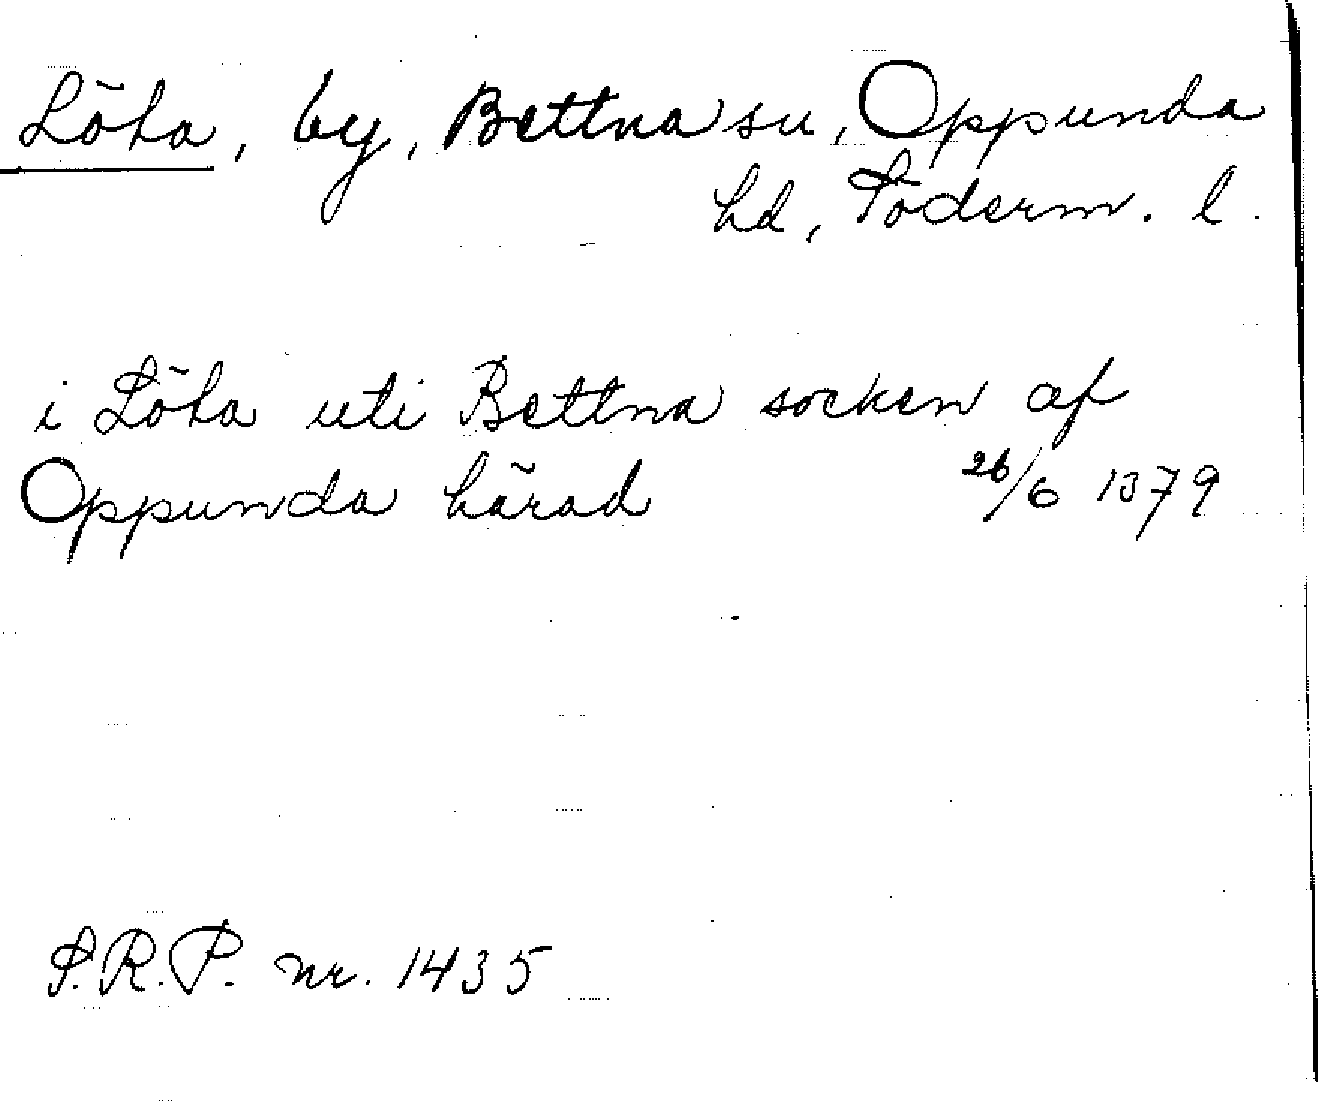 Löta, by, Bettna sn, Oppunda
hd, Söderm. l.
i Löta uti Bettna socken af
Oppunda härad 26/6 1379
S.R.P. nr. 1435